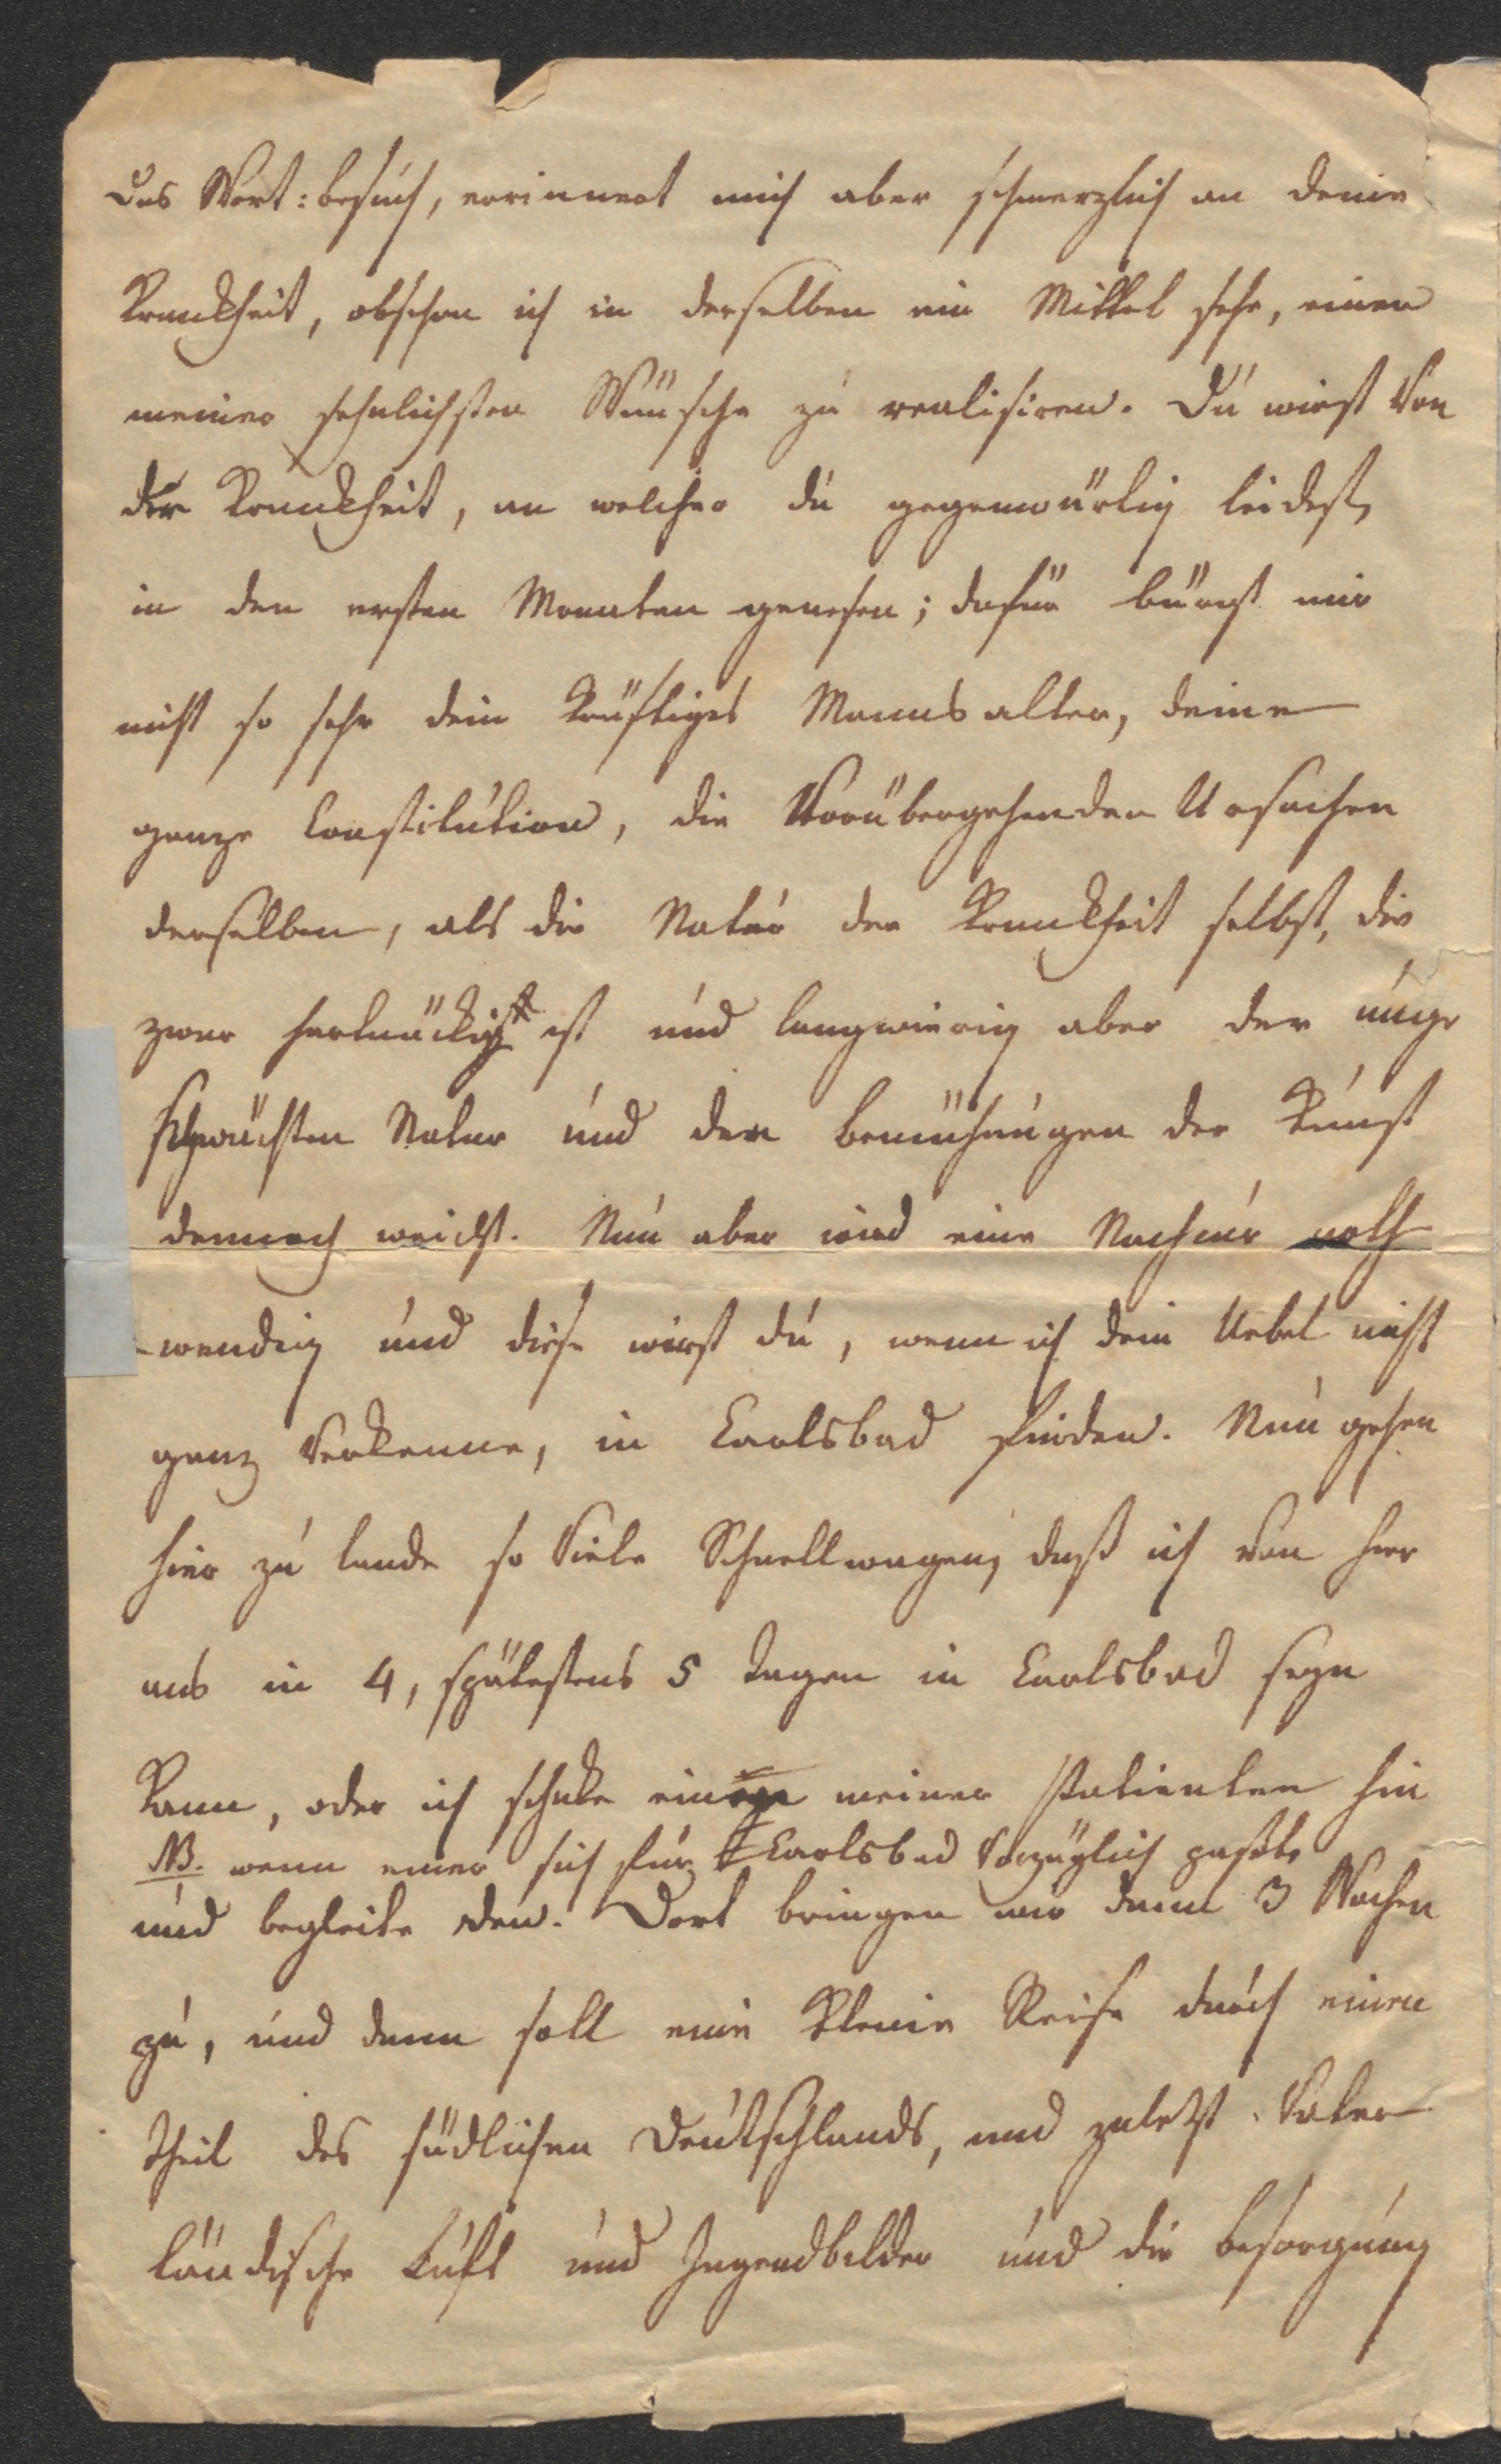 Das Wort: Besuch, errinnert mich aber schmerzlich an deine
Kranckheit, obschon ich in derselben ein Mittel sehe, einen
meiner sehnlichsten Wünsche zu realisiren. Du wirst von
der Kranckheit, an welcher du gegenwärtig leidest,
in den ersten Monaten genesen; dafür bürgt mir
nicht so sehr dein kräftiges Manns alter, deine
ganze Constitution, die vorübergehenden Ursachen
derselben, als die Natur der Kranckheit selbst, die
zwar hartnäckig ist und langwierig aber der unge
schwächten Natur und den Bemühungen der Kunst
dennoch weicht. Nun aber wird eine Nachcur noth
wendig und diese wirst du, wenn ich dein Uebel nicht
ganz verkenne, in Carlsbad finden. Nun gehen
hier zu Lande so viele Schnellwagen, daß ich von hier
aus in 4, spätestens 5 Tagen in Carlsbad seyn
kann, oder ich schicke einige meiner Patienten hin
NB. wenn einer sich für Carlsbad vorzüglich paßte
und begleite den. Dort bringen wir dann 3 Wochen
zu, und dann soll eine kleine Reise durch einen
Theil des südlichen Deutschlands, und zuletzt vater
ländische Luft und Jugendbilder und die Besorgung